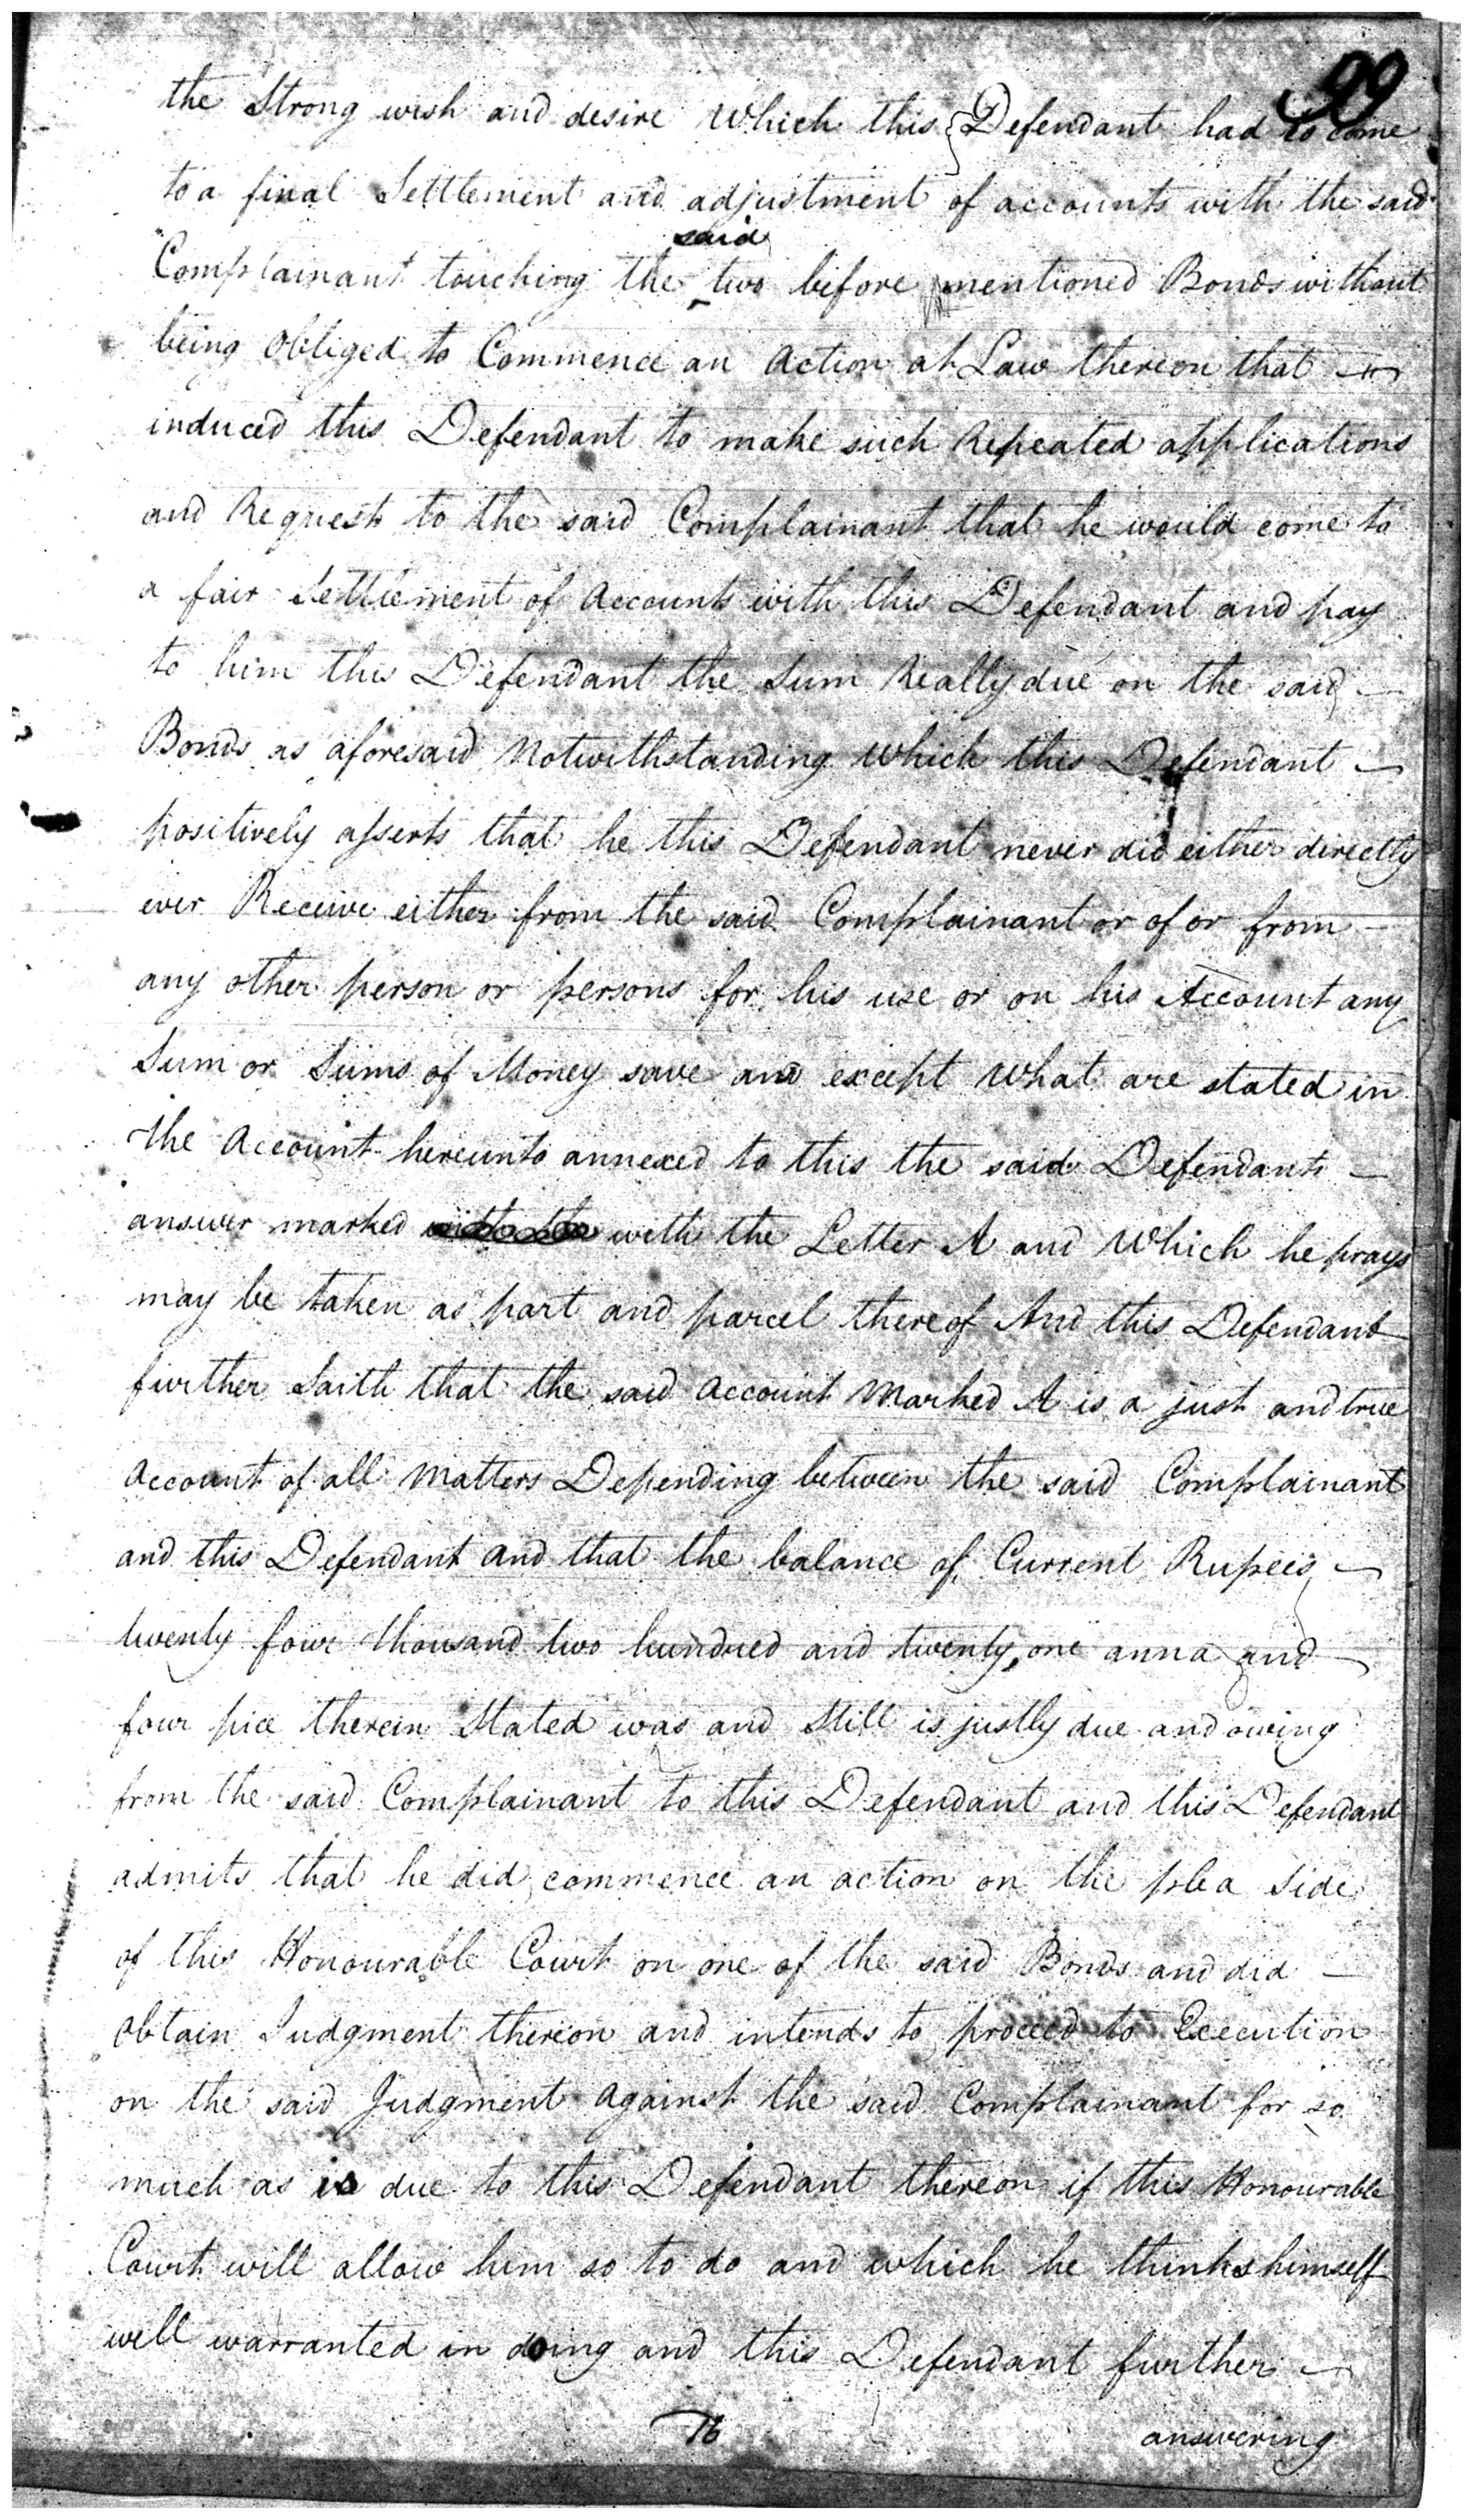 99
the Strong wish and desire which this Defendant had to come
to a final Settlement and adjustment of accounts with the said
said
Complainant touching the two before mentioned Bonds without
being Obliged to Commence an Action at Law thereon that
induced this Defendant to make such Repeated applications
and Requests to the said Complainant that he would come to
a fair Settlement of Accounts with this Defendant and pay
to him this Defendant the Sum Really due on the said
Bonds as aforesaid Notwithstanding which this Defendant
positively asserts that he this Defendant never did either directly
ever Receive either from the said Complainant or of or from
any other person or persons for his use or on his Account any
Sum or Sums of Money save and except what are stated in
the Account hereunto annexed to this the said Defendants
answer marked with the Letter A and which he prays
may be taken as part and parcel thereof And this Defendant
further Saith that the said Account Marked A is a just and true
Account of all Matters Depending between the said Complainant
and this Defendant and that the balance of Current Rupees
twenty four thousand two hundred and twenty, one anna and
four pice therein Stated was and Still is justly due and owing
from the said Complainant to this Defendant and this Defendant
admits that he did commence an action on the plea Side
of this Honourable Court on one of the said Bonds and did
Obtain Judgment thereon and intends to proceed to Execution
on the said Judgment against the said Complainant for so
much as is due to this Defendant thereon if this Honourable
Court will allow him so to do and which he thinks himself
well warranted in doing and this Defendant further
76
answering